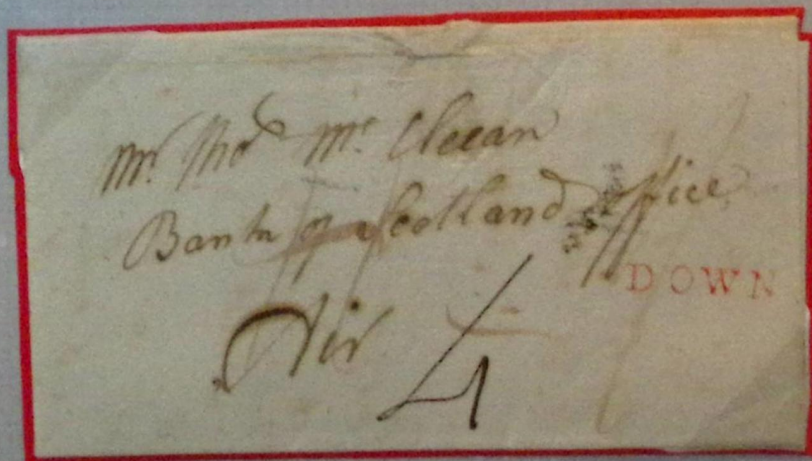 Mr. Tho.s Mc. Clean
Bank of Scotland office
DOWN
Air
4